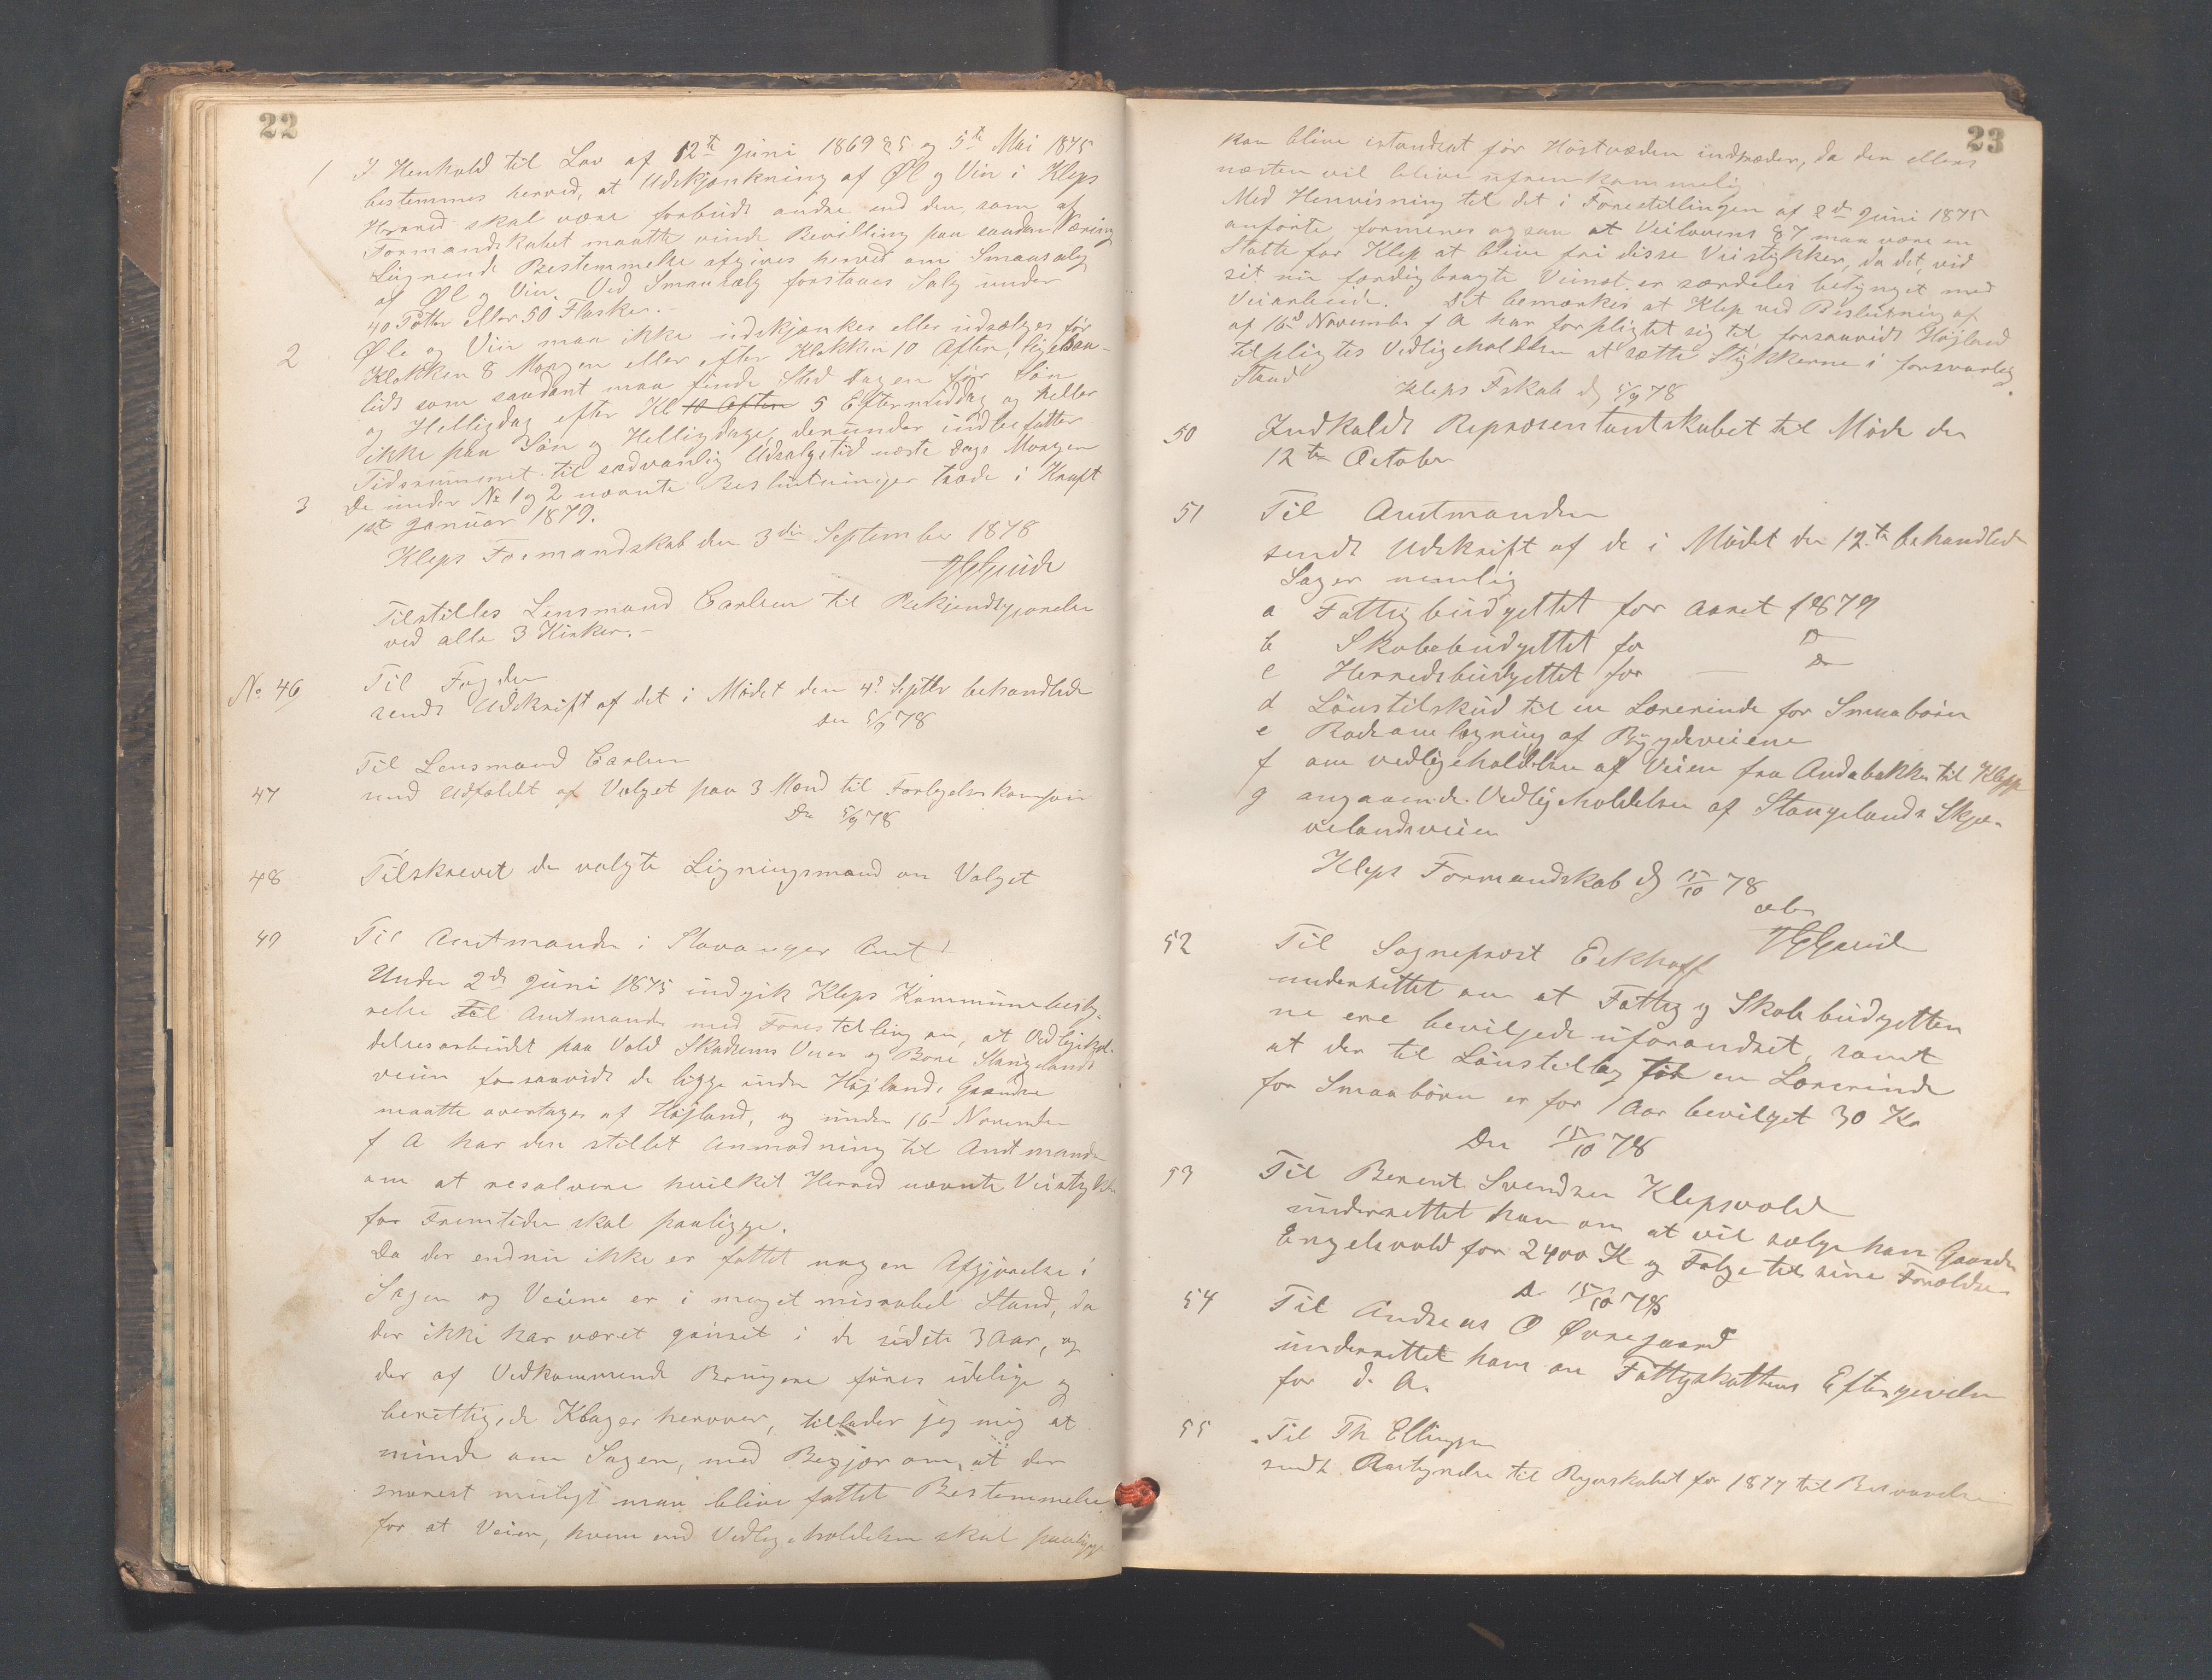 22
1 I Henhold til Lov af 12te Juni 1869 § 5 og 5te Mai 1875
bestemmes herved, at Udskjænkning af Øl og Vin i Kleps
Herred skal være forbudt andre end den, som af
Formandskabet maatte vinde Bevilling paa saadan Næring
Lignende Bestemmelse afgives herved om Smaasalg
af Øl og Vin. Ved Smausalg forstaaes Salg under
40 Potter eller 50 Flasker.-
2 Øl og Vin maa ikke udskjænkes eller udsælges før
Klokken 8 Morgen eller efter Klokken 10 Aften, ligesaa-
lidt som saadant maa finde Sted Dagen før Søn
og Helligdag efter Kl 10 Aften 5 Eftermiddag og heller
ikke paa Søn og Helligdage, derunder indbefattet
Tidsrummet til sædvanlig Udsalgstid næste Dags Morgen
3 De under No 1 og 2 nævnte Beslutninger træde i Kraft
1st Januar 1879.
Kleps Formandskab den 3die September 1878
Tilstilles Lensmand Carlsen til Bekjendtgjørelse
ved alle 3 Kirker.-
No 46 Til Fogden
sendt Udskrift af det i Mødet den 4de Septbr behandlede
Den 5/9 78
Til Lensmand Carlsen
47 send Udfaldet af Valget paa 3 Mænd til Forligelseskommission
Den 5/9 78
48 Tilskrevet de valgte Ligningsmænd om Valget
49 Til Amtmanden i Stavanger Amt!
Under 2de Juni 1875 indgik Kleps Kommunebesty-
relse til Amtmanden med Forestilling om, at Vedligehol-
delsesarbeidet paa Vold Skadsems Veien og Bore Stangelands
veien forsaavidt de ligge under Højlands Grændse
maatte overtages af Højland, og under 16de November
f A har den stillet Anmodning til Amtmanden
om at resolvere hvilket Herred nævnte Veistykker
for Fremtiden skal paaligge.
Da der endnu ikke er fattet nogen Afgjørelse i
Sagen og Veiene er i meget miserabel Stand, da
der ikke har været gruset i de sidste 3 Aar, og
der af Vedkommende Brugere føres idelige og
berettigede Klager herover, tillader jeg mig at
minde om Sagen, med Begjær om, at der
snarest muligt maa blive fattet Bestemmelse
for at Veien, hvem end Vedligeholdelsen skal paaligge
23
kan blive istandsat før Høstvæden indtræder, da den ellers
næsten vil blive ufremkommelig
Med Henvisning til det i Forestillingen af 2de Juni 1875
anførte formenes ogsaa at Veilovens § 7 maa være en
Støtte for Klep at blive fri disse Veistykker, da det, ved
sit nu færdigbragte Veinet er særdeles betynget med
Veiarbeide. Det bemærkes at Klep ved Beslutning af
af 16de November f A har forpligtet sig til, forsaavidt Højland
tilpligtes Vedligeholdelsen at sætte Stykkerne i forsvarlig
Stand.
Kleps Fskab d 5/9 78
50 Indkaldt Repræsentantskabet til Møde den
12te October
51 Til Amtmanden
sendt Udskrift af de i Mødet den 12te behandlede
Sager nemlig
a Fattigbudgettet for Aaret 1879
b Skolebudgettet for Do
c Herredsbudgettet for — Do
d Lønstilskud til en Lærerinde for Smaabørn
e Rodeomlægning af Bygdeveiene
f om vedligeholdelsen af Veien fra Andabakke til Klepp
g angaaende Vedligeholdelsen af Stangelands Skjæ-
velandsveien
Kleps Formandskab d 15/10 78
52 Til Sogneprest Eckhoff
underrettet om at Fattig og Skolebudgetter-
ne ere bevilgede uforandret, samt
at der til Lønstillæg for en Lærerinde
for Smaabørn er for 1 Aar bevilget 30 Kr
Den 15/10 78
53 Til Berent Svendsen Klepsvold
underrettet ham om at vil sælge ham Gaarden
Engelsvold for 2400 Kr og Følge til sine Forældre
D. 15/10 78
54 Til Andreas O Øvregaard
underrettet ham om Fattigskattens Eftergivelse
for d. A.
55 Til Th Ellingsen
sendt Antegnelser til Regnskabet for 1877 til Besvarelse